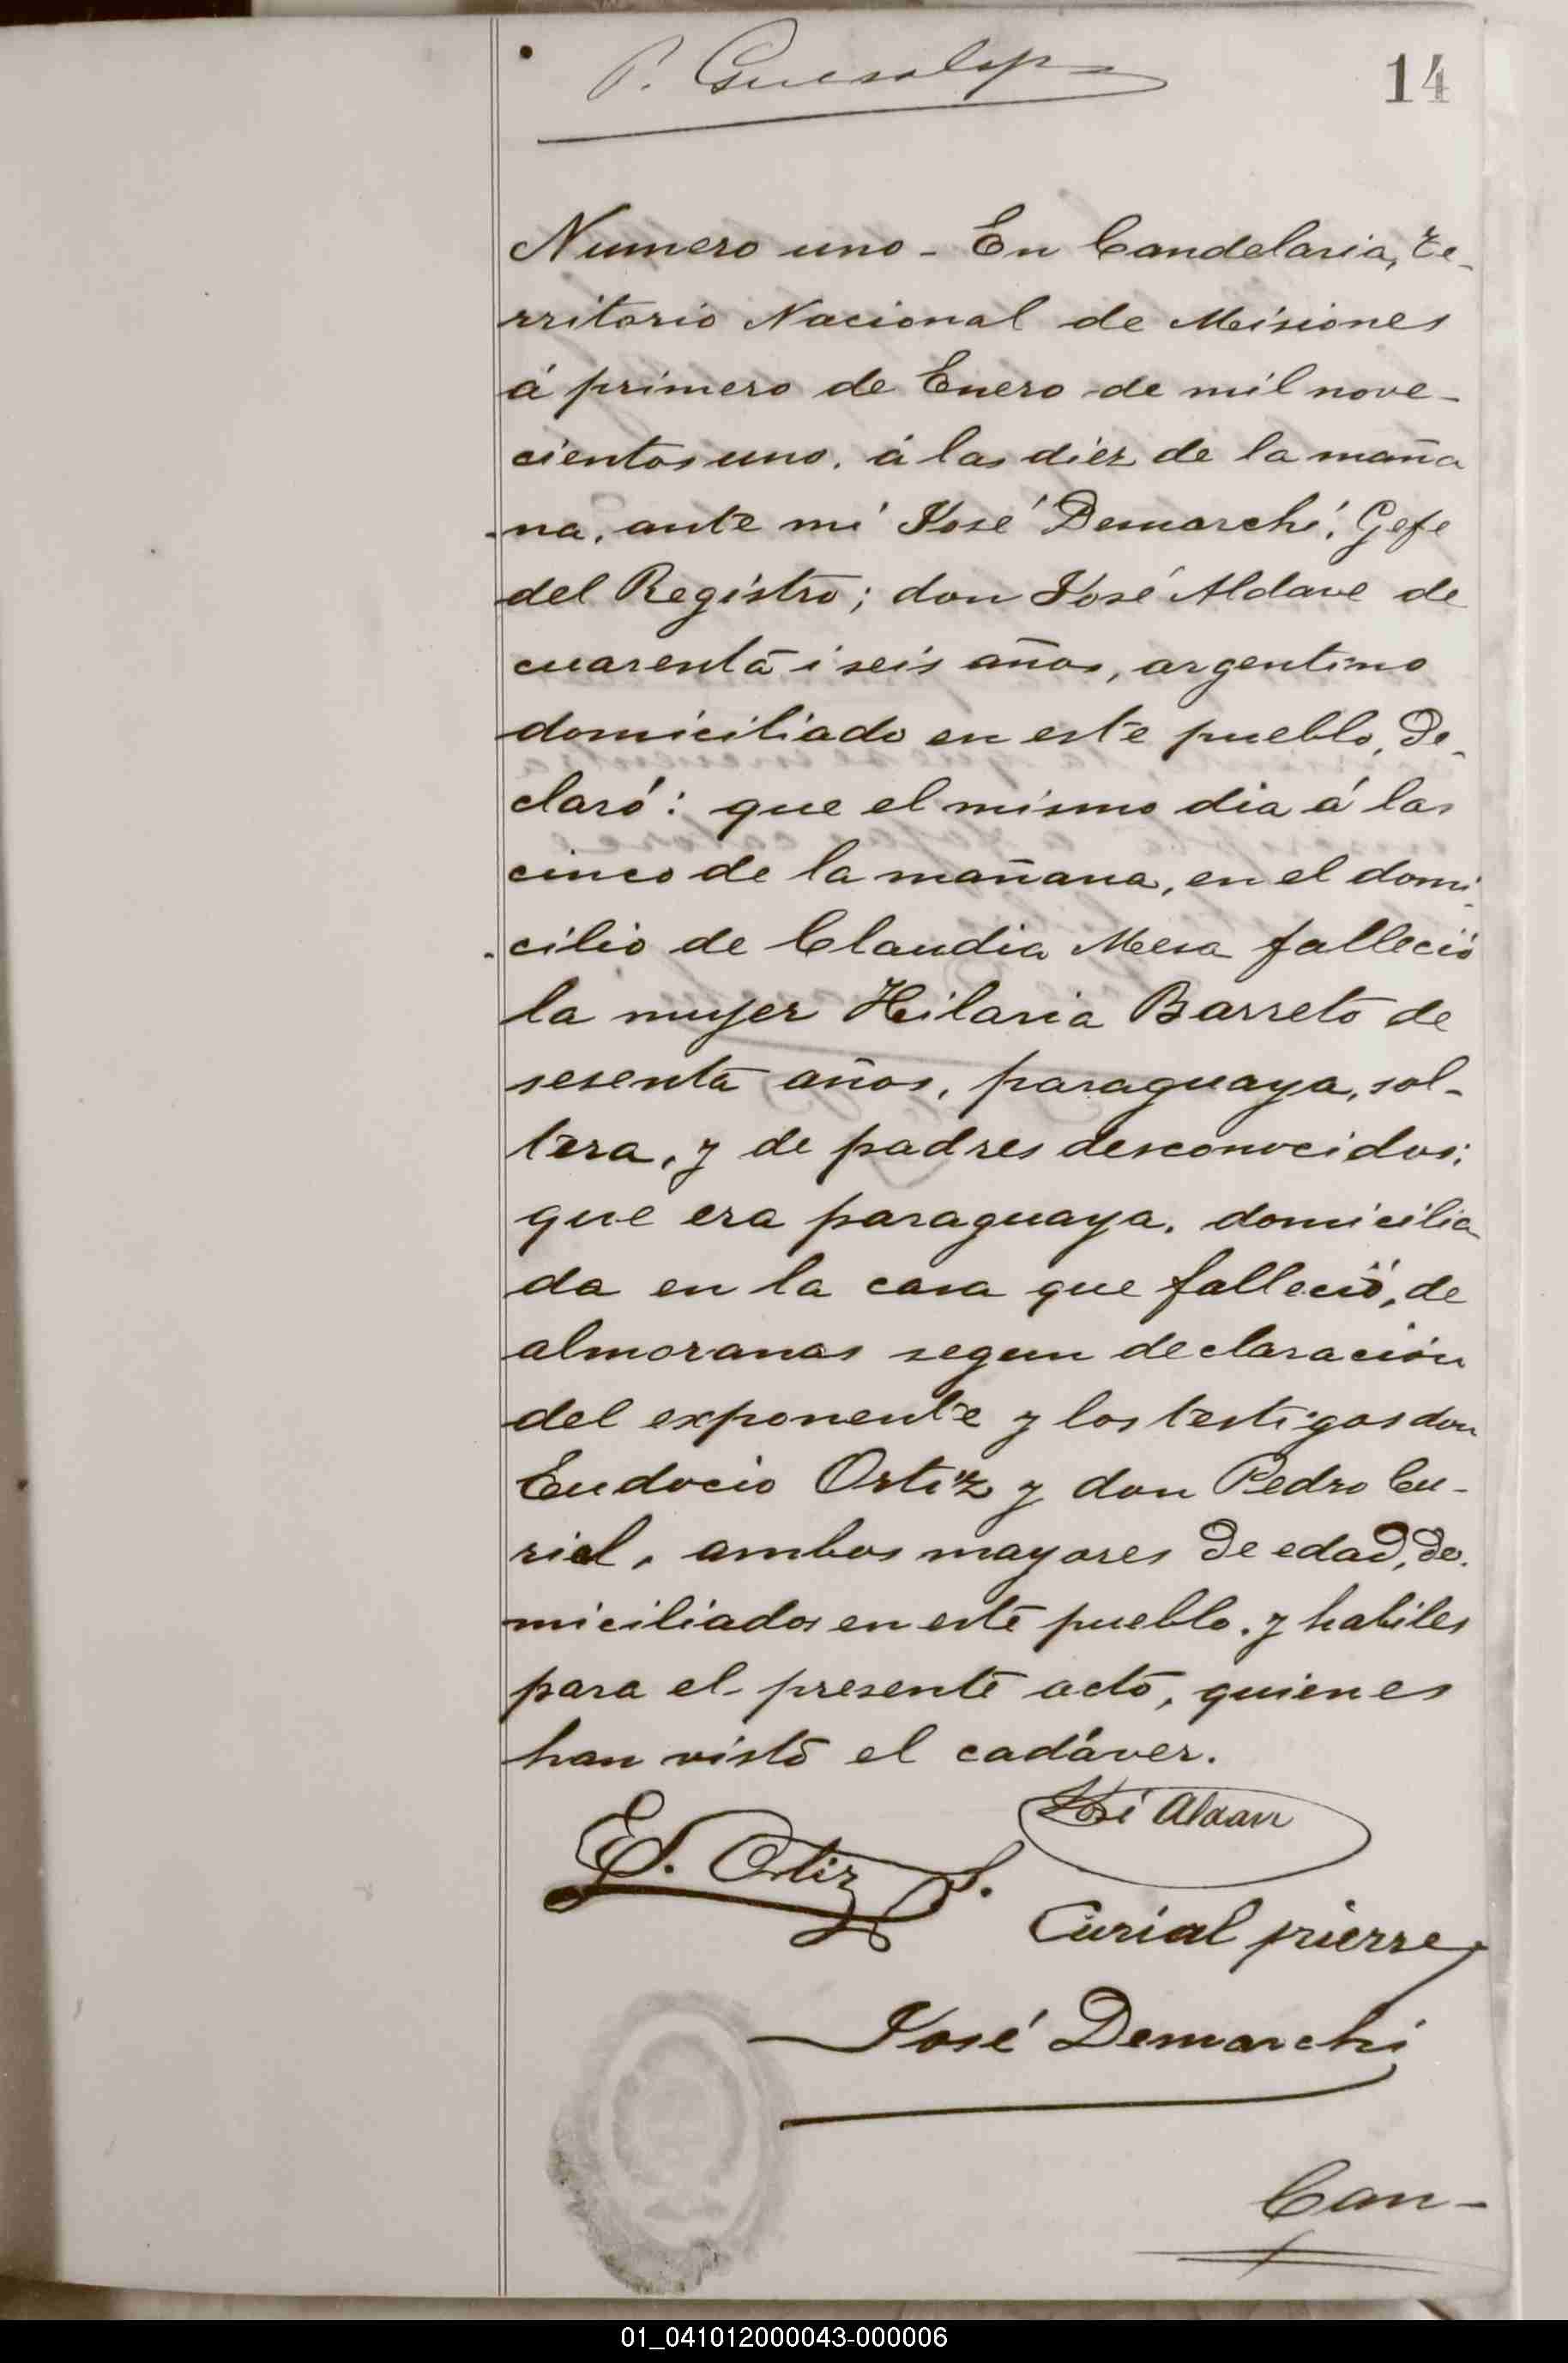 14
Numero uno - En Candelaria, Te-
rritorio Nacional de Misiones
á primero de Enero de mil nove-
cientos uno. á las diez de la maña
-na, ante mi José Demarchi, Gefe
del Registro; don José Aldave de
cuarenta i seis años, argentino
domiciliado en este pueblo, de-
claró: que el mismo dia á las
cinco de la mañana, en el domi-
-cilio de Claudia Mesa falleció
la mujer Hilaria Barreto de
sesenta años, paraguaya, sol-
tera, y de padres desconocidos;
que era paraguaya, domicilia
da en la casa que falleció, de
almoranas segun declaración
del exponente y los testigos don
Eudocio Ortiz y don Pedro Cu-
rial, ambos mayores de edad, do-
miciliados en este pueblo, y habiles
para el presente acto, quienes
han visto el cadáver.
José Aldave
E. Ortiz S.
Curial pierre
José Demarchi
Can-
01_041012000043-000006